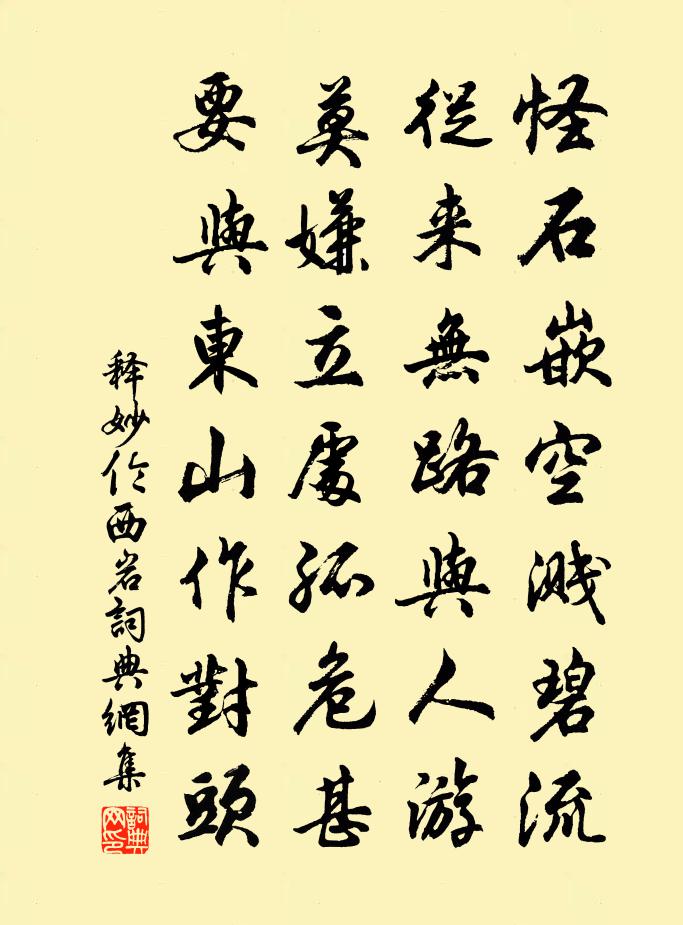 怪石嵌空溅碧流
從来無路與人游
莫嫌立處孤危甚
要與東山作對頭
释妙伦西岩詞典網集
詞典网印